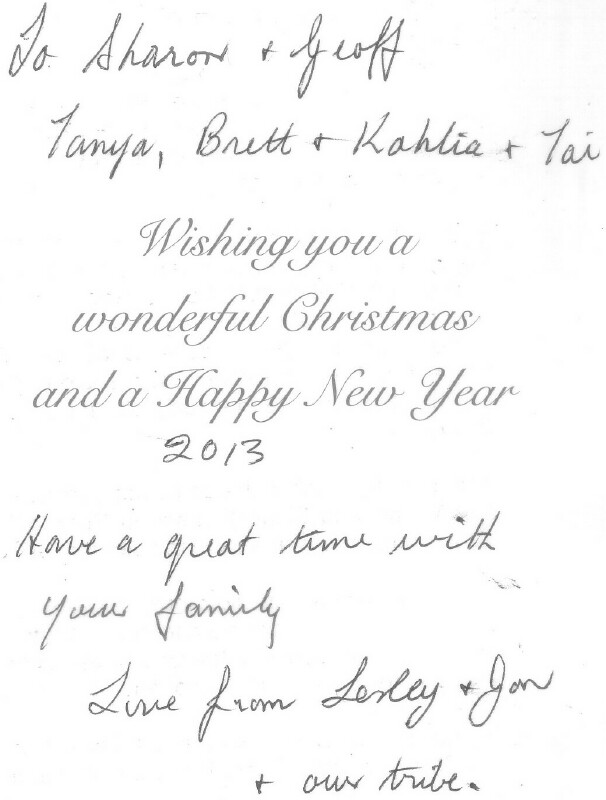 To Sharon + Geoff
Tanya, Brett + Kahlia + Tai
Wishing you a
wonderful Christmas
and a Happy New Year
2013
Have a great time with
your family
Love from Lesley + Jon
+ our tribe.